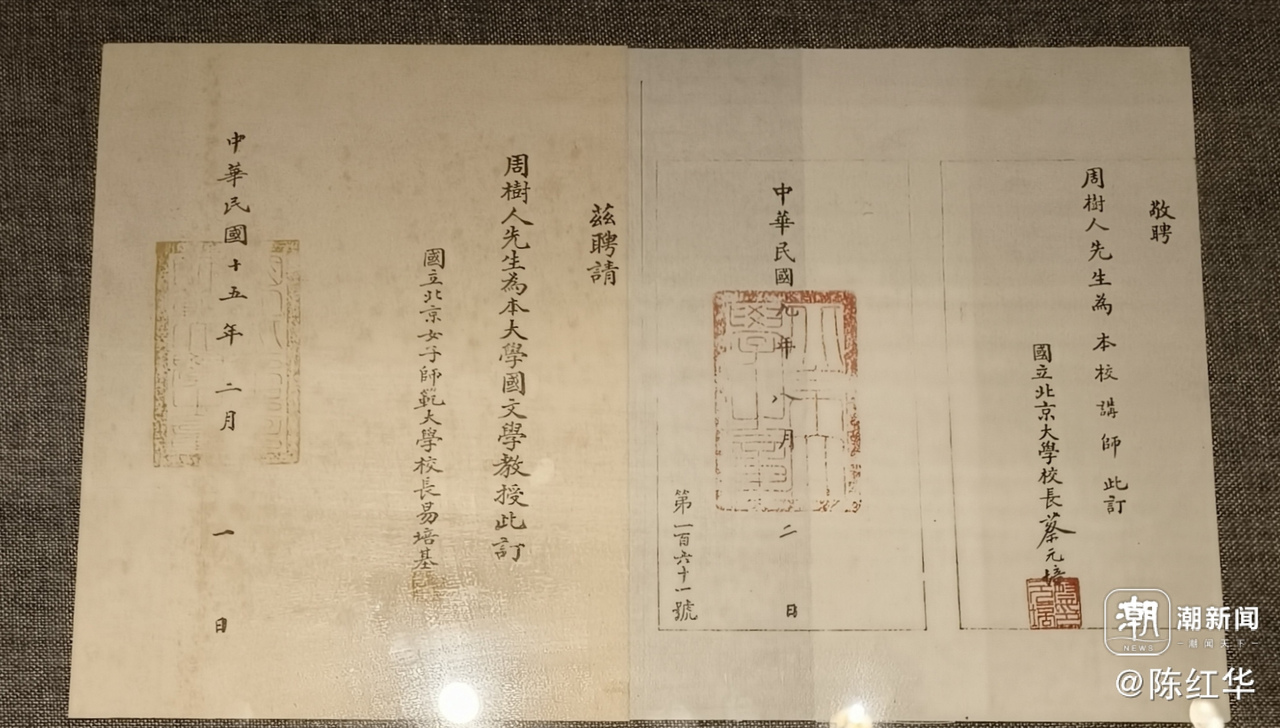 敬聘
周樹人先生為本校講師此訂
國立北京大學校長蔡元培
中華民國九年八月二日
第一百六十一號
茲聘請
周樹人先生為本大學國文學教授此訂
國立北京女子師範大學校長易培基
中華民國十五年二月一日
潮
NEWS
潮新闻
潮闻天下
@陈红华